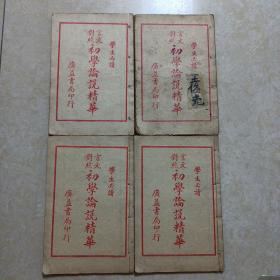 學生必讀
言文對照 初學論說精華
廣益書局印行
學生必讀
言文對照 初學論說精華
學生必讀
言文對照 初學論說精華
廣益書局印行
學生必讀
言文對照 初學論說精華
廣益書局印行